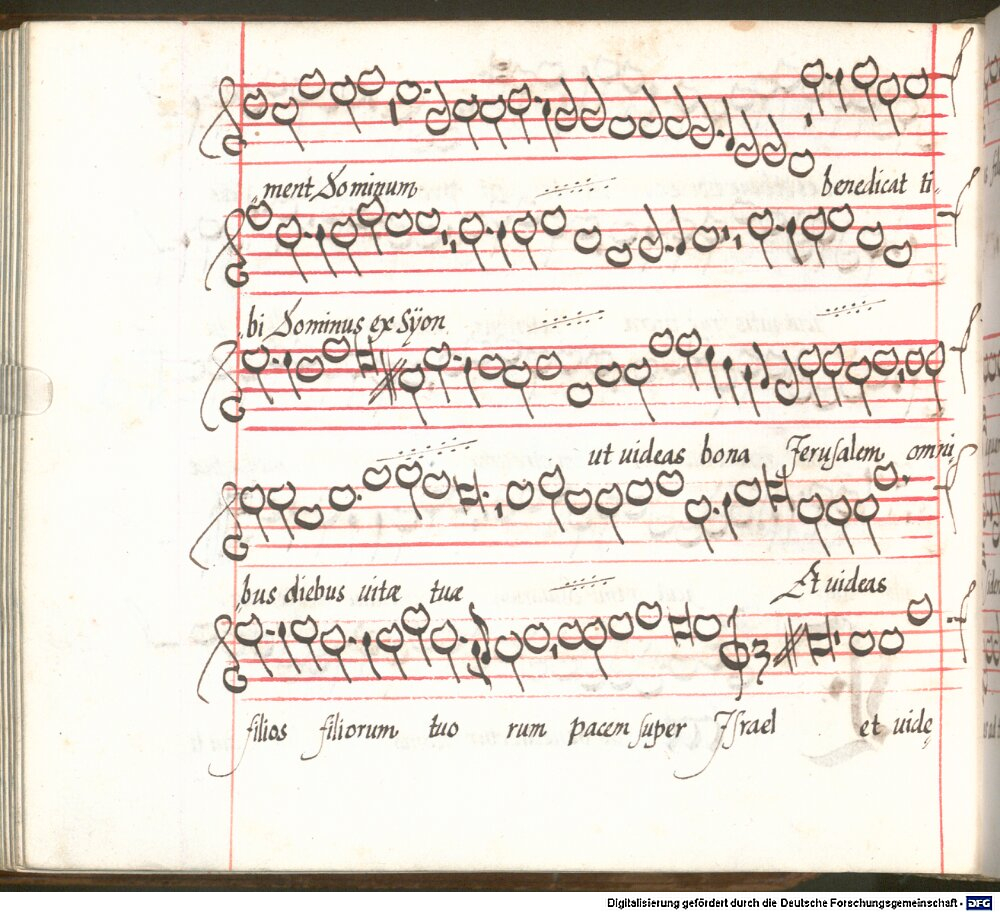 ment Dominum benedicat ti-
bi Dominus ex Sÿon
ut uideas bona Jerusalem omni
bus diebus uitæ tuæ Et uideas
filios filiorum tuo rum pacem super Israel et uide
Digitalisierung gefördert durch die Deutsche Forschungsgemeinschaft - DFG